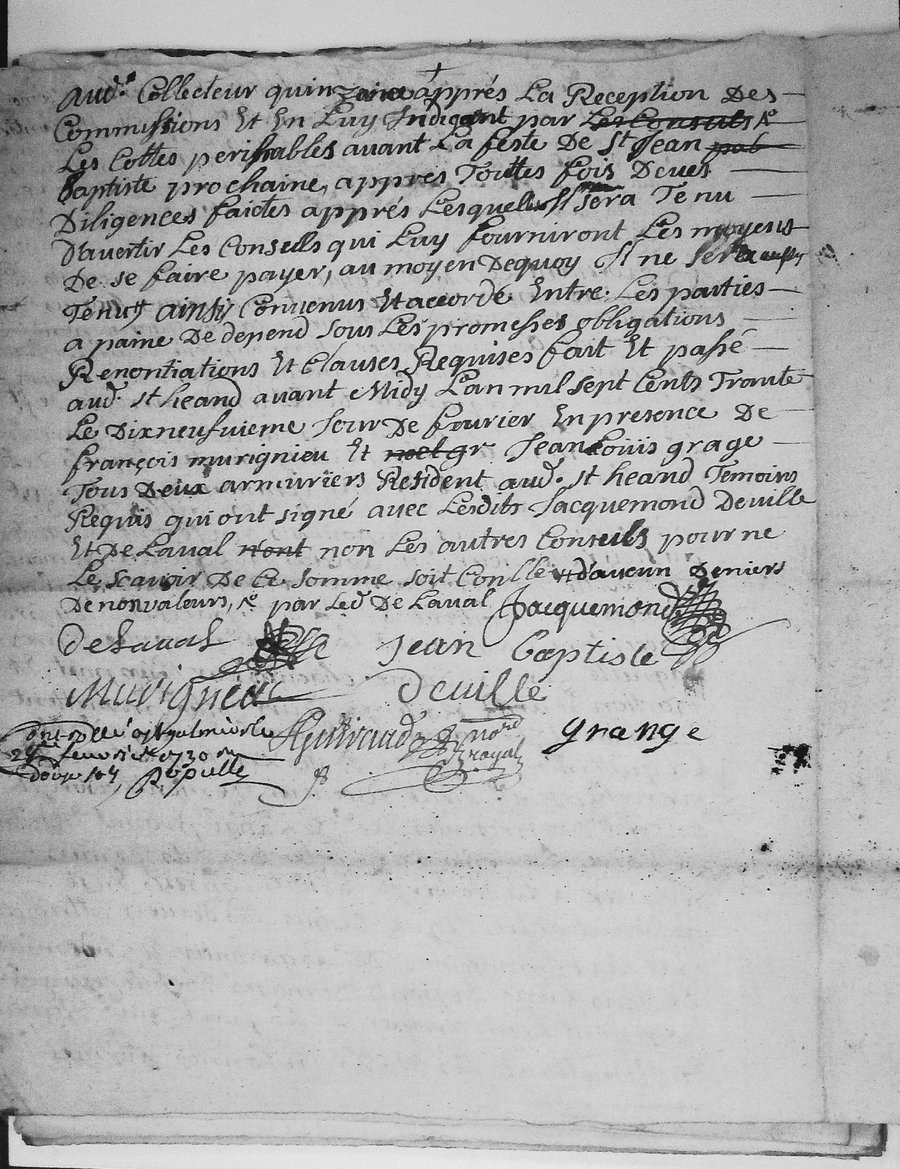 aud. Collecteur quinzaine apprés La Reception Des
Commissions Et En Luy Indigant par Les Consuls
Les Cottes perissables avant La feste De St Jean
baptiste prochaine, appres Touttes fois Deues
Diligences faictes apprés Lesquelles Il sera Tenu
D'avertir Les Consuls qui Luy fourniront Les moyens
De se faire payer, au moyen Dequoy Il ne sera
Tenu ainsy Convenus Et accordé Entre Les parties
a paine De depend sous Les promesses obligations
Renontiations Et Clauses Requises fait Et passé
aud. st heand avant Midy L'an mil sept Cents Trante
Le Dixneufvieme Jour De fevrier En presence De
françois murignieu Et Jean Louis grage
Tous Deux armuriers Resident aud. st heand Temoins
Requis qui ont signé avec Lesdits Jacquemond Deville
Et De Laval non Les autres Consuls pour ne
Le scavoir De Ce somme soit Conlle et d'aucun Deniers
De nonvaleurs, par Led De Laval Jacquemond
deLaval Jean baptiste
Murigneu deville
grange